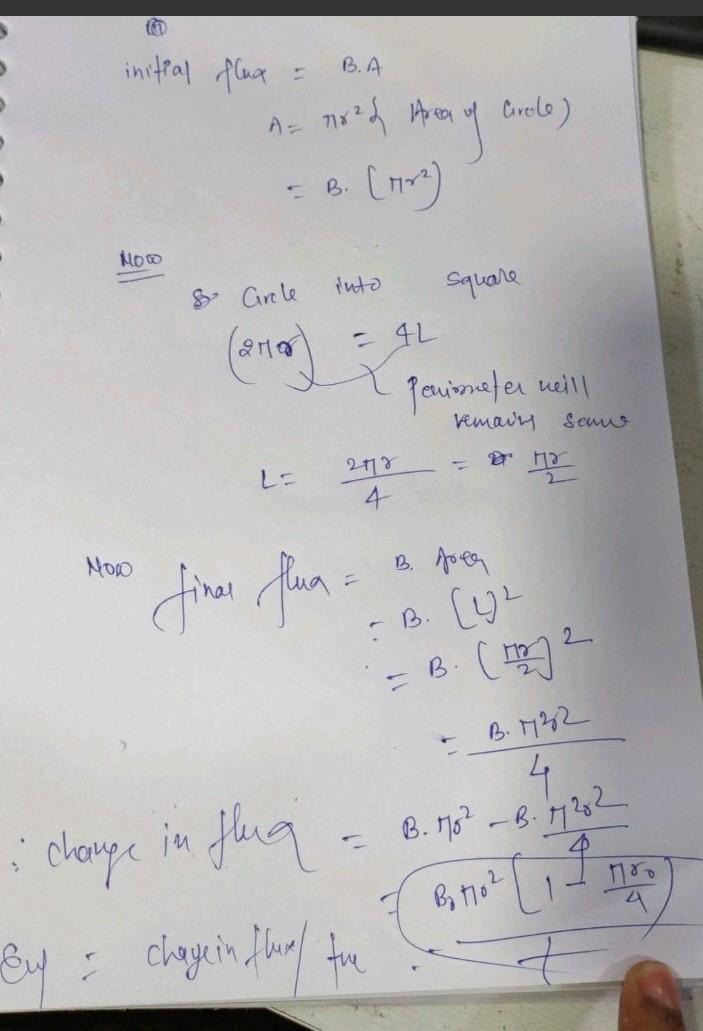 initial flux = B.A
A = πr² { Area of Circle )
= B. (πr²)
Now
Circle into square
(2πr) = 4L
Perimeter will
remains same
L = 2πr/4 = πr/2
Now final flux = B. Area
= B. (L)²
= B. (πr/2)²
= B. π²r²/4
∴ change in flux = B. πr² - B. π²r²/4
= B. πr² [1 - πr₀/4)
Emf = change in flux / time = t